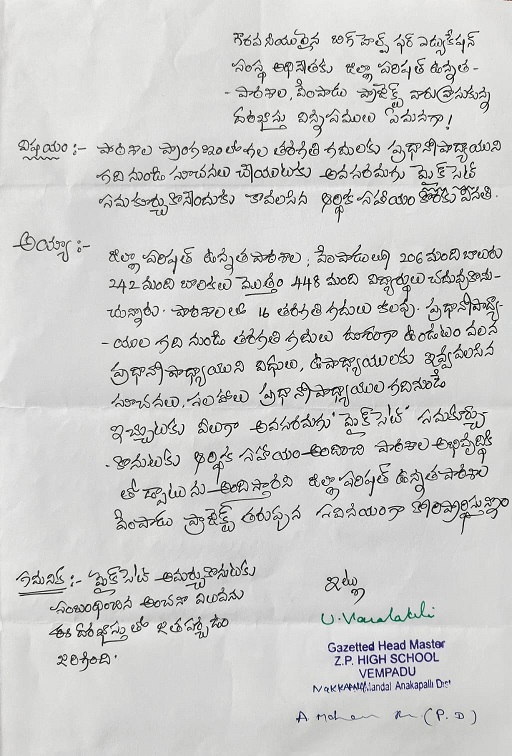 గౌరవనీయులైన బిగ్ హెల్ప్ ఫర్ ఎడ్యుకేషన్
సంస్థ అధినేతకు జిల్లా పరిషత్ ఉన్నత -
- పాఠశాల, వేంపాడు ప్రాజెక్ట్ వారు వ్రాసుకున్న
దరఖాస్తు విన్నపములు ఏమనగా!
విషయం :- పాఠశాల ప్రాంగణంలో గల తరగతి గదులకు ప్రధానోపాధ్యాయుని
గది నుండి సూచనలు చేయుటకు అవసరమగు మైక్ సెట్
సమకూర్చుకొనేందుకు కావలసిన ఆర్థిక సహాయం కొరకు వినతి.
అయ్యా :-
జిల్లా పరిషత్ ఉన్నత పాఠశాల, వేంపాడులో 206 మంది బాలురు
242 మంది బాలికలు మొత్తం 448 మంది విద్యార్థులు చదువుకొను-
చున్నారు. పాఠశాలలో 16 తరగతి గదులు కలవు. ప్రధానోపాధ్యా-
- యుల గది నుండి తరగతి గదులు దూరంగా ఉండటం వలన
ప్రధానోపాధ్యాయుని విధులు, ఉపాధ్యాయులకు ఇవ్వవలసిన
సూచనలు, సలహాలు ప్రధానోపాధ్యాయుల గదినుండి
ఇచ్చుటకు వీలుగా అవసరమగు "మైక్ సెట్" సమకూర్చు
- కొనుటకు ఆర్థిక సహాయం అందించి పాఠశాల అభివృద్ధికి
తోడ్పాటును అందిస్తారని జిల్లా పరిషత్ ఉన్నత పాఠశాల
వేంపాడు ప్రాజెక్ట్ తరుపున సవినయంగా కోరి ప్రార్థిస్తున్నాం
గమనిక :- మైక్ సెట్ అమర్చుకొనుటకు
సంబంధించిన అంచనా విలువను
ఈ దరఖాస్తుతో జతపర్చడం
జరిగింది.
ఇట్లు
Gazetted Head Master
Z.P. HIGH SCHOOL
VEMPADU
NAKKAPALLI Mandal Anakapalli Dist
A Mohan (P.D)